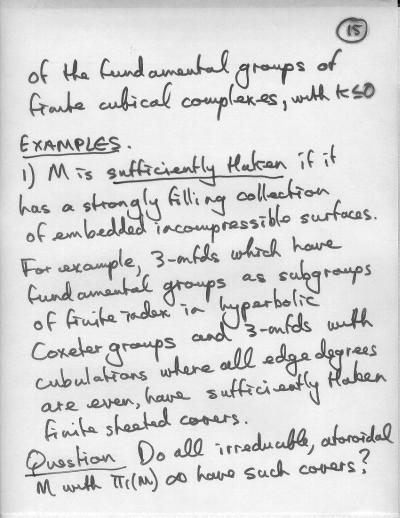 15
of the fundamental groups of
finite cubical complexes, with K≤0
EXAMPLES.
1) M is sufficiently Haken if it
has a strongly filling collection
of embedded incompressible surfaces.
For example, 3-mfds which have
fundamental groups as subgroups
of finite index in hyperbolic
Coxeter groups and 3-mfds with
cubulations where all edge degrees
are even, have sufficiently Haken
finite sheeted covers.
Question Do all irreducible, atoroidal
M with π₁(M) ∞ have such covers?